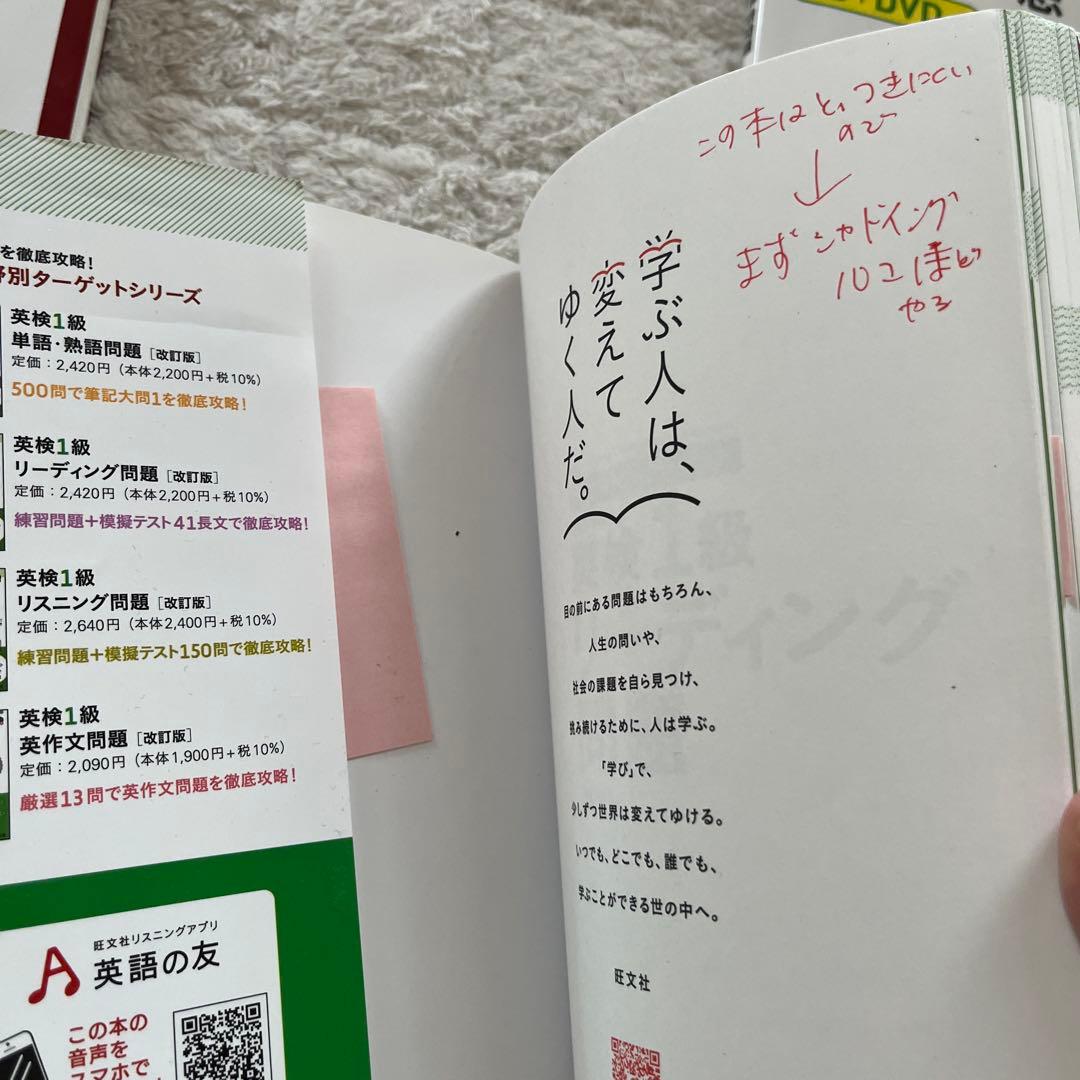 を徹底攻略!
野別ターゲットシリーズ
英検1級
単語・熟語問題 [改訂版]
定価:2,420円(本体2,200円+税10%)
500問で筆記大問1を徹底攻略!
英検1級
リーディング問題 [改訂版]
定価:2,420円(本体2,200円+税10%)
練習問題+模擬テスト41長文で徹底攻略!
英検1級
リスニング問題 [改訂版]
定価:2,640円(本体2,400円+税10%)
練習問題+模擬テスト150問で徹底攻略!
英検1級
英作文問題 [改訂版]
定価:2,090円(本体1,900円+税10%)
厳選13問で英作文問題を徹底攻略!
旺文社リスニングアプリ
英語の友
この本の
音声を
スマホで
DVD
この本はとっつきにくい
ので
↓
まずシャドイング
10コほど
やる
学ぶ人は、
変えて
ゆく人だ。
目の前にある問題はもちろん、
人生の問いや、
社会の課題を自ら見つけ、
挑み続けるために、人は学ぶ。
「学び」で、
少しずつ世界は変えてゆける。
いつでも、どこでも、誰でも、
学ぶことができる世の中へ。
旺文社